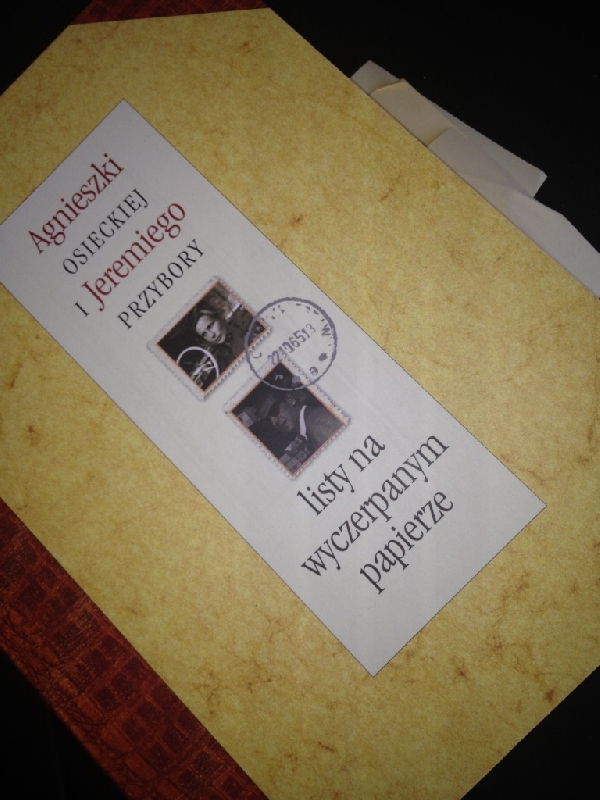 Agnieszki
OSIECKIEJ
i Jeremiego
PRZYBORY
listy na
wyczerpanym
papierze